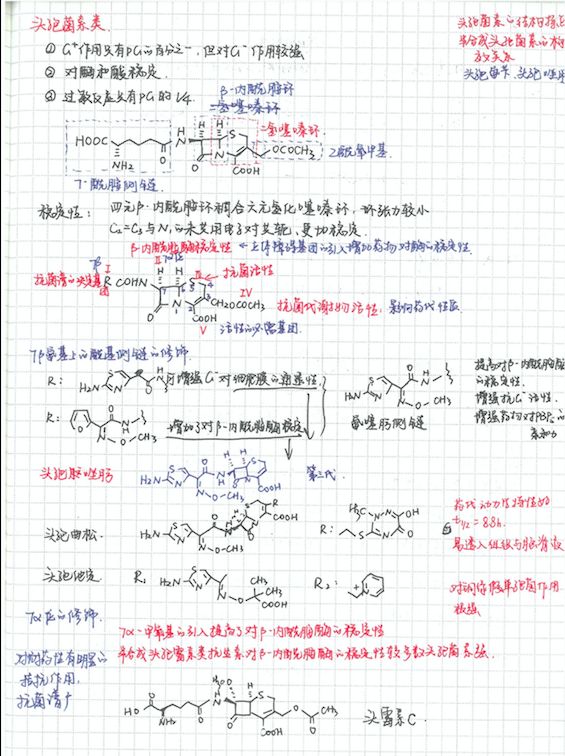 头孢菌素类
① G⁺作用只有PG的百分之一,但对G⁻作用较强
② 对酶和酸稳定.
③ 过敏反应只有PG的1/4.
头孢菌素的结构
半合成头孢菌素的构
效关系
β-内酰胺环
二氢噻嗪环
二氢噻嗪环
HOOC
NH₂
H
N
O
H H
S
N
O
OCOCH₃
COOH
乙酰氧甲基
7-酰胺侧链
稳定性:
四元β-内酰胺环稠合六元氢化噻嗪环,环张力较小
C₂=C₃与N₁的未共用电子对共轭,更加稳定.
β-内酰胺酶稳定性 ← 立体障碍基团的引入增加药物对酶的稳定性.
抗菌谱的决定基团
I
II
III
抗菌活性
R CONH
H H
7 6 5
S
4
3
2
N
1
O
CH₂OCOCH₃
COOH
IV
抗菌代谢物活性,影响药代性质
V
活性的必需基团.
7β氨基上的酰基侧链的修饰
R:
H₂N
S
N
O
H
N
可增强G⁻对细胞膜的通透性
R:
O
N
O-CH₃
增加了对β-内酰胺酶稳定
H₂N
S
N
O
H
N
N
O
CH₃
氨噻肟侧链
提高对β-内酰胺酶
的稳定性.
增强抗G⁻活性.
增强药物对PBPs的
亲和力
头孢唑肟
H₂N
S
N
O
N
OCH₃
H H
S
COOH
第三代.
头孢曲松.
H₂N
S
N
O
N
O-CH₃
R
COOH
R:
H₃C
N
N
OH
N
O
S
药代动力学特性好
t₁/₂ = 8.8h.
易透入组织与脑脊液
头孢他定
R₁
H₂N
S
N
N
O
CH₃
CH₃
COOH
R₂:
N
7α位的修饰.
7α-甲氧基的引入提高了对β-内酰胺酶的稳定性
半合成头孢霉素类抗生素对β-内酰胺酶的稳定性较多数头孢菌素强.
对耐药性有明显的
拮抗作用.
抗菌谱广
HO
O
NH₂
O
H
N
H₃CO
H
S
N
O
O
CH₃
COOH
头霉素C.